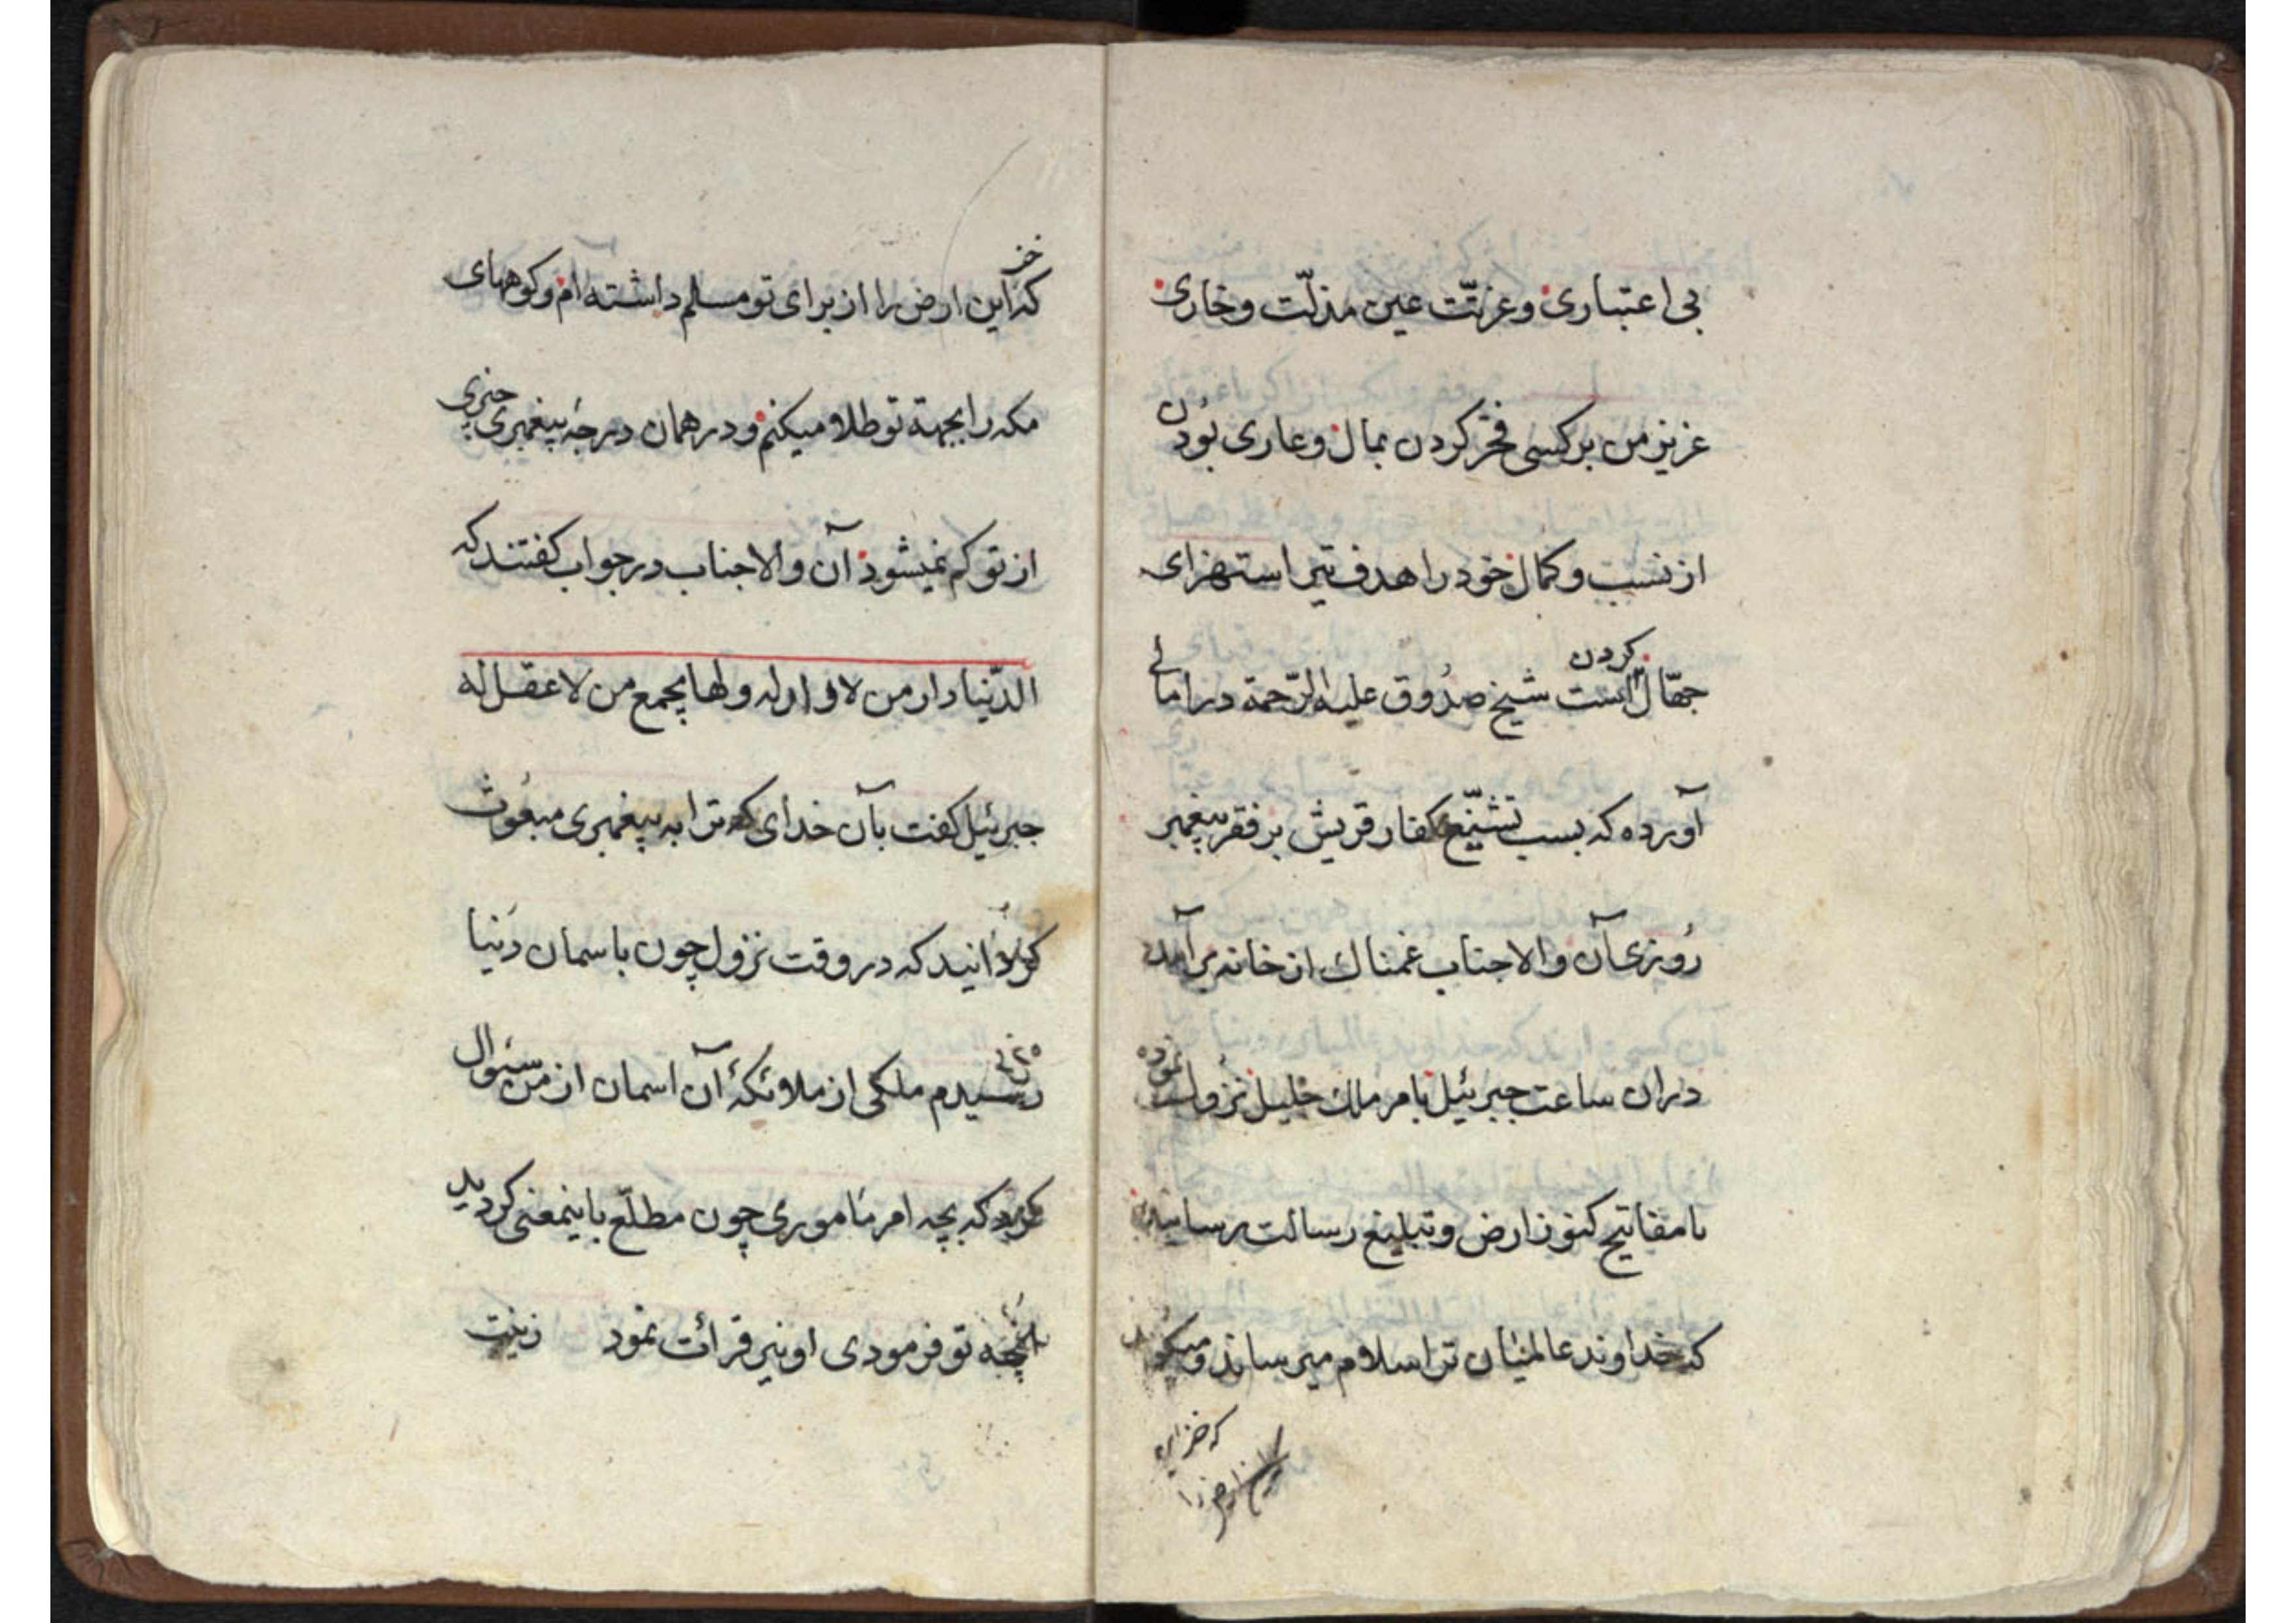 بی اعتباری و عزتّت عین مذلّت و خاری
عزیز من برکسی فخر کردن بمال و عاری بودن
از نسب و کمال خود را هدف تیر استهزای
جهّال کردن است شیخ صدُوق علیه الرّحمة در امالی
آورده که بسبب تشنیّع کفار قریش بر فقر پیغمبر
رُوزی آن والاجناب غمناک از خانه برآمد
دران ساعت جبرئیل بامر ملک جلیل نزُول نموده
با مفاتیح کنوز ارض و تبلیغ رسالت رسانید
که خداوند عالمیان ترا سلام میرساند و میکوید
که خزاین
که این ارض را از برای تو مسلم داشته ام و کوههای
مکه را بجهة تو طلا میکنم و در همان درجهٔ پیغمبری چیزی
از تو کم نمیشود آن والاجناب در جواب کفتند که
الدّنیا دار من لا دار له و لها یجمع من لا عقل له
جبرئیل کفت بآن خدای که ترا به پیغمبری مبعُوث
کردانید که در وقت نزول چون باسمان دُنیا
رسیدم ملکی از ملائکهٔ آن اسمان از من سئوال
کرد که بچه امر مامُوری چون مطلّع باینمعنی کردید
آنچه تو فرمودی او نیز قرائت نمود زینت